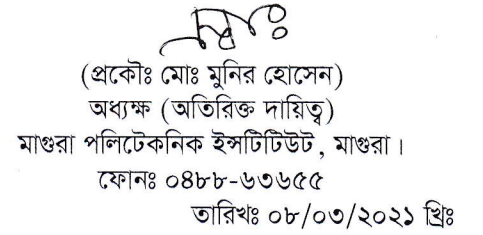 স্বাঃ
(প্রকৌঃ মোঃ মুনির হোসেন)
অধ্যক্ষ (অতিরিক্ত দায়িত্ব)
মাগুরা পলিটেকনিক ইন্সটিটিউট, মাগুরা।
ফোনঃ ০৪৮৮-৬৩৬৫৫
তারিখঃ ০৮/০৩/২০২১ খ্রিঃ